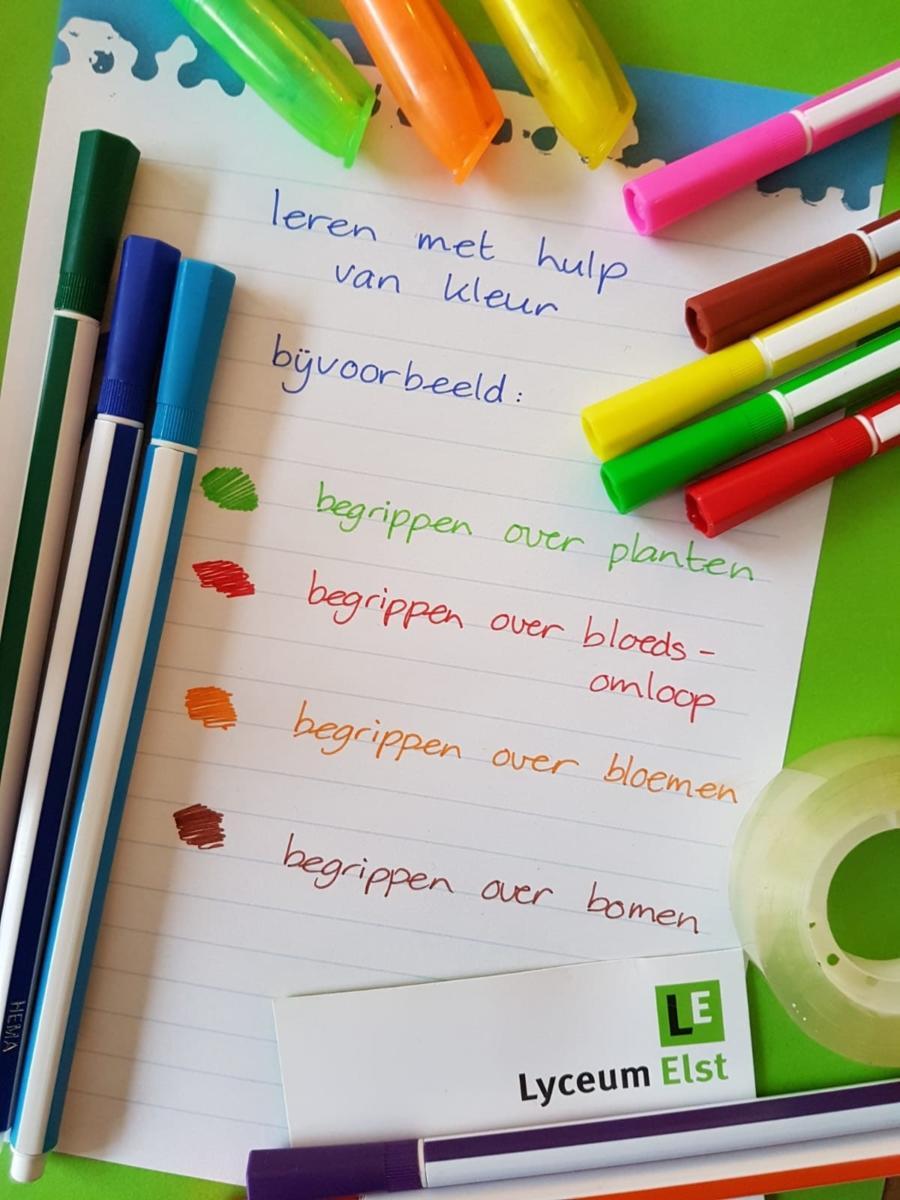 leren met hulp
van kleur
bijvoorbeeld:
begrippen over planten
begrippen over bloeds-
omloop
begrippen over bloemen
begrippen over bomen
HEMA
LE
Lyceum Elst